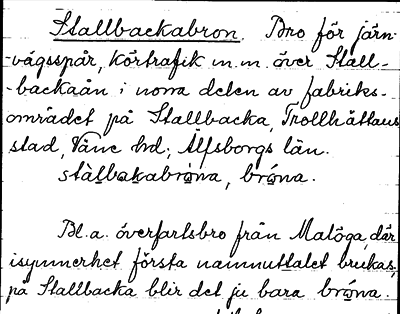 Stallbackabron. Bro för järn-
-vägsspår, körtrafik m.m. över Stall-
-backaån i norra delen av fabriks-
området på Stallbacka, Trollhättans
stad, Väne hd, Älfsborgs län.
stàlbakabrọna, brọ́na.
Bl.a. överfartsbro från Malöga, där
isynnerhet första namnuttalet brukas,
på Stallbacka blir det ju bara brọ́na.